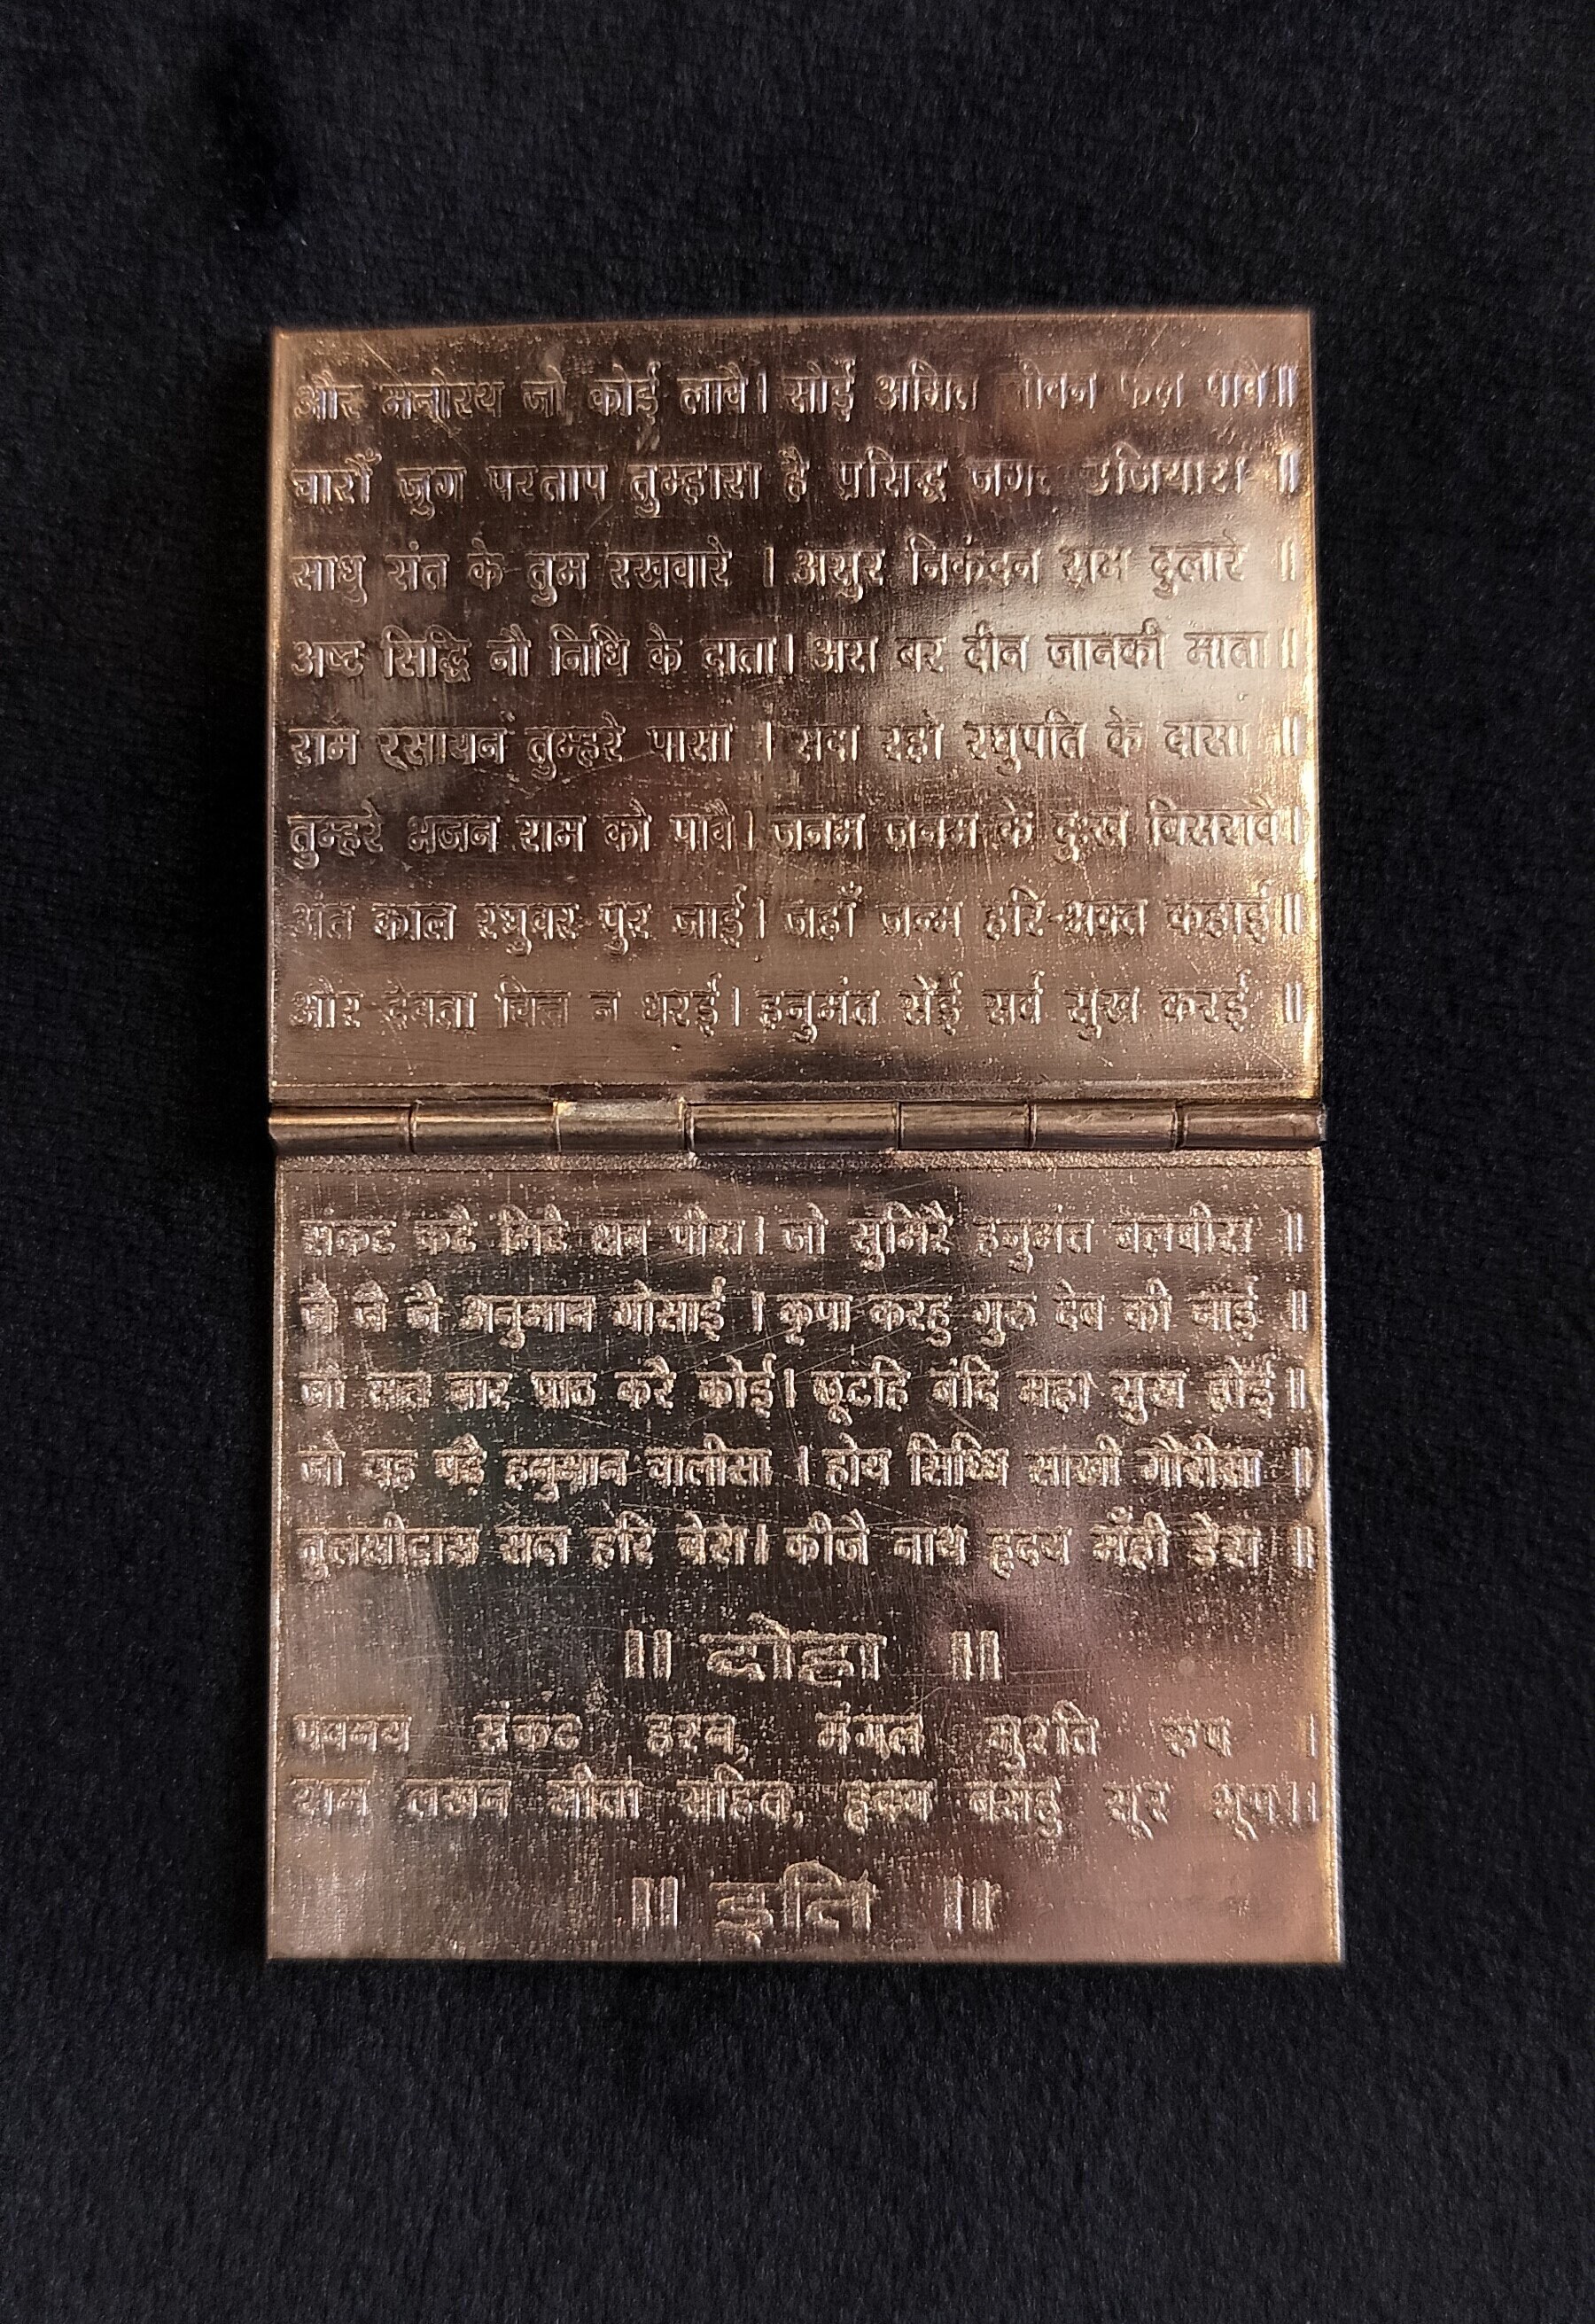 और मनोरथ जो कोई लावै। सोई अमित जीवन फल पावै॥
चारौं जुग परताप तुम्हारा है प्रसिद्ध जगत उजियारा ॥
साधु संत के तुम रखवारे । असुर निकंदन राम दुलारे ॥
अष्ट सिद्धि नौ निधि के दाता। अस बर दीन जानकी माता॥
राम रसायन तुम्हरे पासा । सदा रहो रघुपति के दासा ॥
तुम्हरे भजन राम को पावै। जनम जनम के दुःख बिसरावै।
अंत काल रघुवर पुर जाई। जहाँ जन्म हरि-भक्त कहाई॥
और देवता चित्त न धरई। हनुमंत सेई सर्व सुख करई ॥
संकट कटै मिटै सब पीरा। जो सुमिरै हनुमंत बलबीरा ॥
जै जै जै हनुमान गोसाई । कृपा करहु गुरु देव की नाई ॥
जो सत बार पाठ करै कोई। छूटहि बंदि महा सुख होई॥
जो यह पढ़ै हनुमान चालीसा । होय सिध्धि साखी गौरीसा ॥
तुलसीदास सदा हरि चेरा। कीजै नाथ हृदय मँही डेरा ॥
॥ दोहा ॥
संकट हरन, मंगल मुरति रूप ।
राम लखन सीता सहित, हृदय बसहु सूर भूप॥
॥ इति ॥